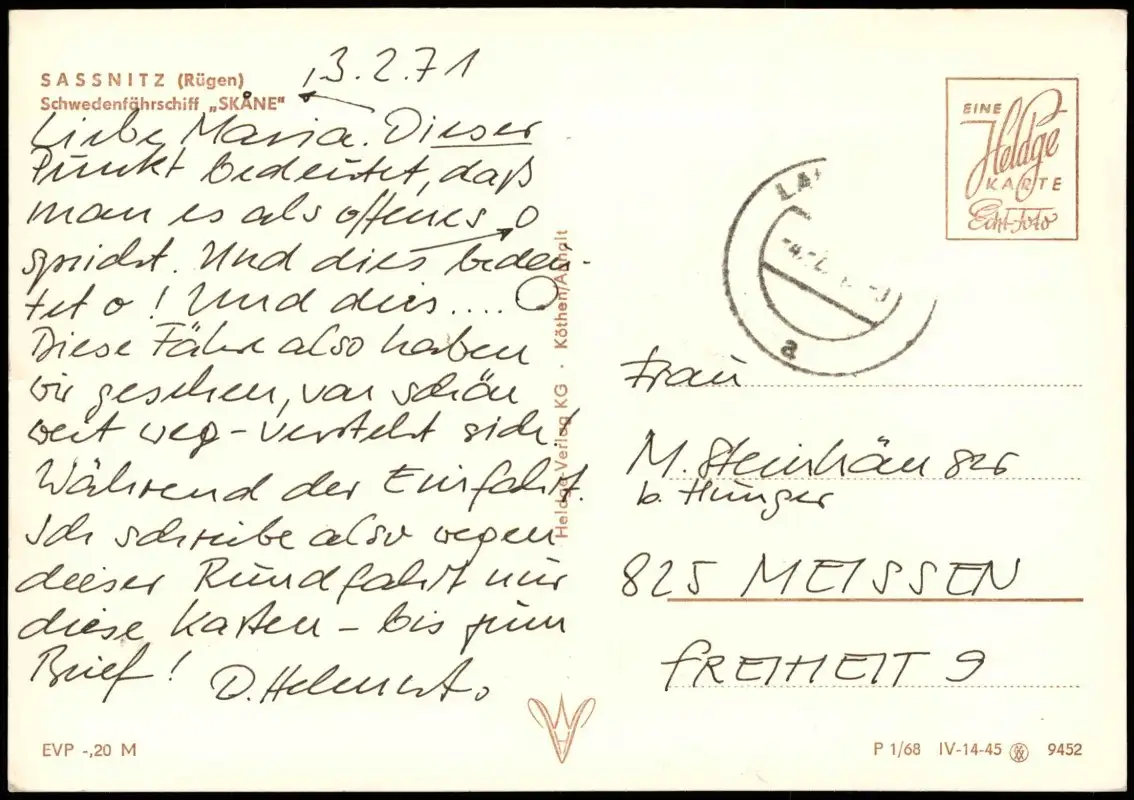 SASSNITZ (Rügen)
Schwedenfährschiff „SKÅNE"
3.2.71
Liebe Maria. Dieser
Punkt bedeutet, daß
man es als offenes o
spricht. Und dies bedeu-
tet o! Und dies.... O
Diese Fähre also haben
wir gesehen, von schön
weit weg – versteht sich.
Während der Einfahrt.
Ich schreibe also wegen
dieser Rundfahrt nur
diese Karten – bis zum
Brief! D. Helmut.
EVP -,20 M
Heldge-Verlag KG · Köthen/Anhalt
EINE
Heldge
KARTE
Echt-Foto
a
Frau
M. Steinhäuser
b. Hunger
825 MEISSEN
FREIHEIT 9
P 1/68 IV-14-45 9452